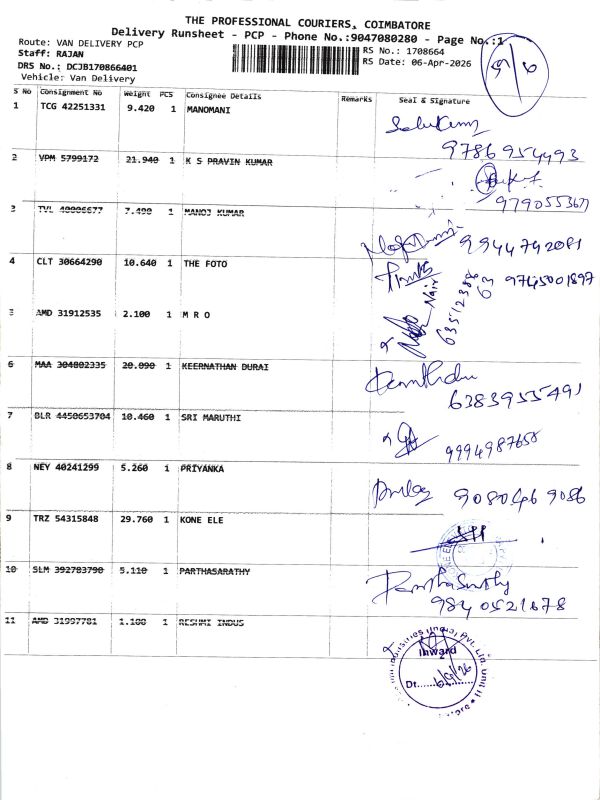 THE PROFESSIONAL COURIERS, COIMBATORE
Delivery Runsheet - PCP - Phone No.:9047080280 - Page No.:1
Route: VAN DELIVERY PCP
RS No.: 1708664
Staff: RAJAN
RS Date: 06-Apr-2026
DRS No.: DCJB170866401
Vehicle: Van Delivery
S No Consignment No Weight PCS Consignee Details Remarks Seal & Signature
1 TCG 42251331 9.420 1 MANOMANI
9786954493
2 VPM 5799172 21.940 1 K S PRAVIN KUMAR
9790553677
3 TVL 40006677 7.490 1 MANOJ KUMAR
9944742081
4 CLT 30664290 10.640 1 THE FOTO
9745001897
5 AMD 31912535 2.100 1 M R O
Nair 63512388 63
6 MAA 304802335 20.090 1 KEERNATHAN DURAI
6383955491
7 BLR 4450653704 10.460 1 SRI MARUTHI
9994987658
8 NEY 40241299 5.260 1 PRIYANKA
9080469086
9 TRZ 54315848 29.760 1 KONE ELE
10 SLM 392783790 5.110 1 PARTHASARATHY
Parthasarathy
9840521678
11 AMD 31997781 1.100 1 RESHMI INDUS
Inward
Dt.